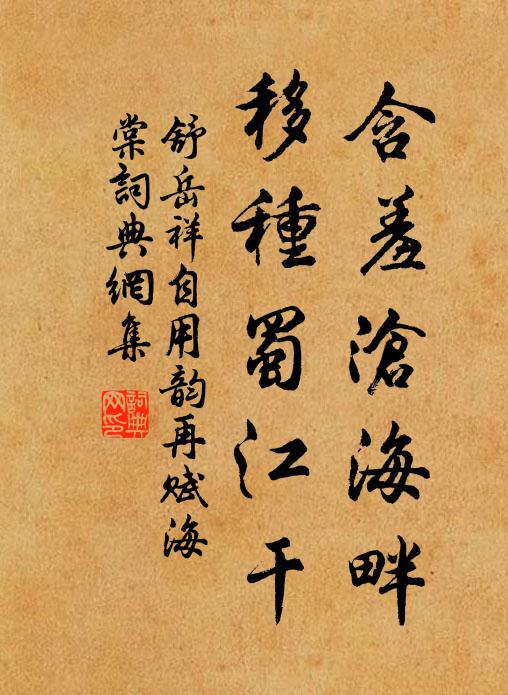 含羞滄海畔
移種蜀江干
舒岳祥自用韵再赋海
棠詞典網集
詞典网印